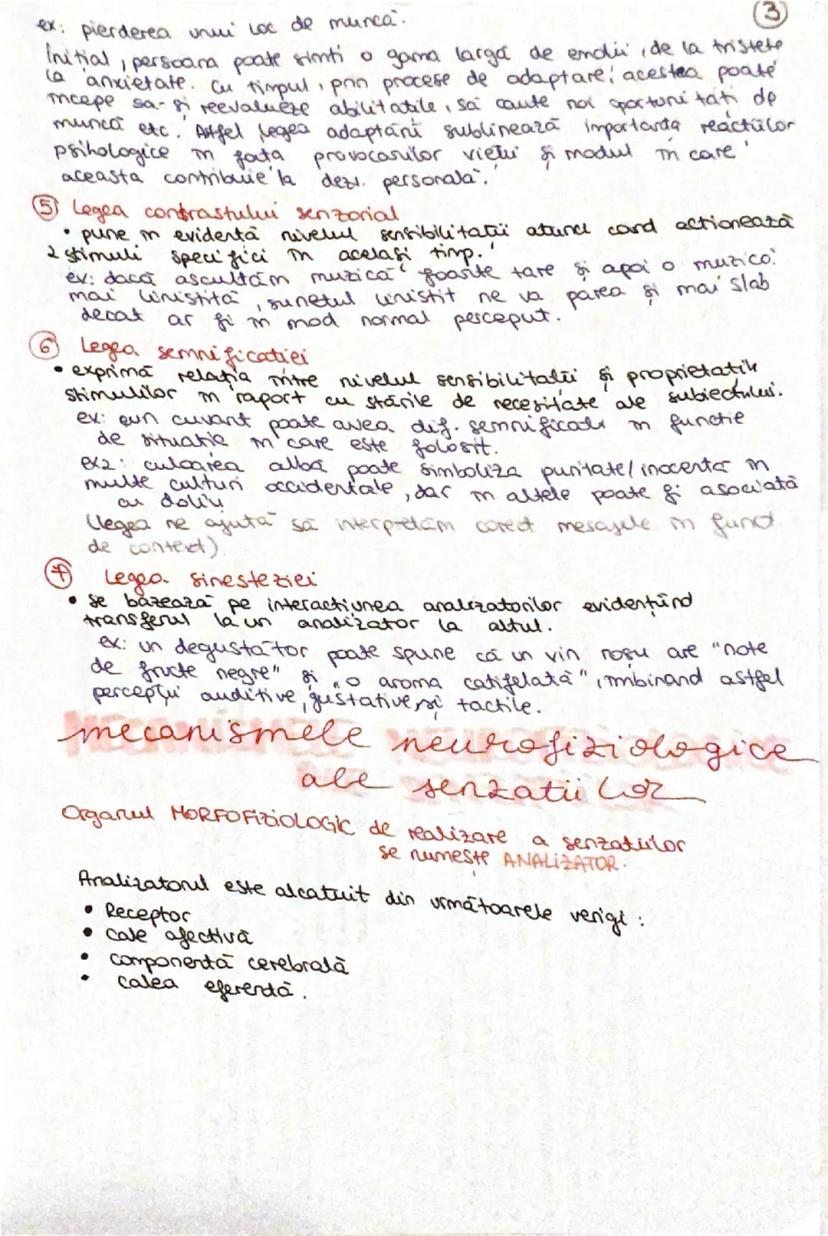 3
ex: pierderea unui loc de muncă.
Inițial, persoana poate simti o gama largă de emoții, de la tristețe
la anxietate. Cu timpul, prin procese de adaptare, acestea poate
incepe sa-și reevalueze abilitatile, să caute noi oportunități de
muncă etc. Astfel legea adaptării subliniează importanța reacțiilor
psihologice în fața provocărilor vieții și modul în care
aceasta contribuie la dezv. personală.
5 Legea contrastului senzorial
• pune în evidentă nivelul sensibilitatii atunci cand actionează
2 stimuli specifici în același timp.
ex: dacă ascultăm muzică foarte tare și apoi o muzică
mai liniștită, sunetul liniștit ne va parea și mai slab
decat ar fi în mod normal perceput.
6 Legea semnificatiei
• exprimă relația între nivelul sensibilității și proprietatile
stimulilor în raport cu stările de necesitate ale subiectului.
ex: un cuvant poate avea dif. semnificatii în functie
de situatia în care este folosit.
ex2: culoarea albă poate simboliza puritate/inocenta în
multe culturi occidentale, dar în altele poate fi asociată
cu doliu
(legea ne ajută să interpretăm corect mesajele în funct.
de context)
7 Legea sinesteziei
• se bazează pe interactiunea analizatorilor evidențiind
transferul la un analizator la altul.
ex: un degustător poate spune că un vin roșu are "note
de fructe negre" și "o aroma catifelată", îmbinand astfel
percepții auditive, gustative și tactile.
mecanismele neurofiziologice
ale senzatiilor
Organul MORFOFIZIOLOGIC de realizare a senzatiilor
se numește ANALIZATOR.
Analizatorul este alcatuit din următoarele verigi:
• Receptor
• cale afectivă
• componentă cerebrală
• calea eferentă.